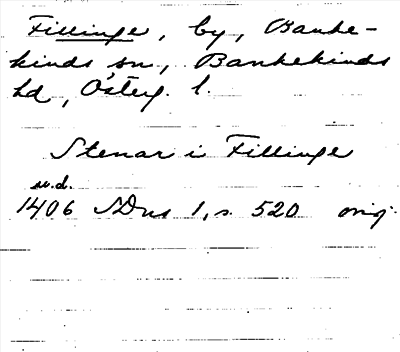 Fillinge, by, Banke-
kinds sn, Bankekinds
hd, Österg. l.
Stenar i Fillinge
u.d.
1406 SDns 1, s. 520 orig.